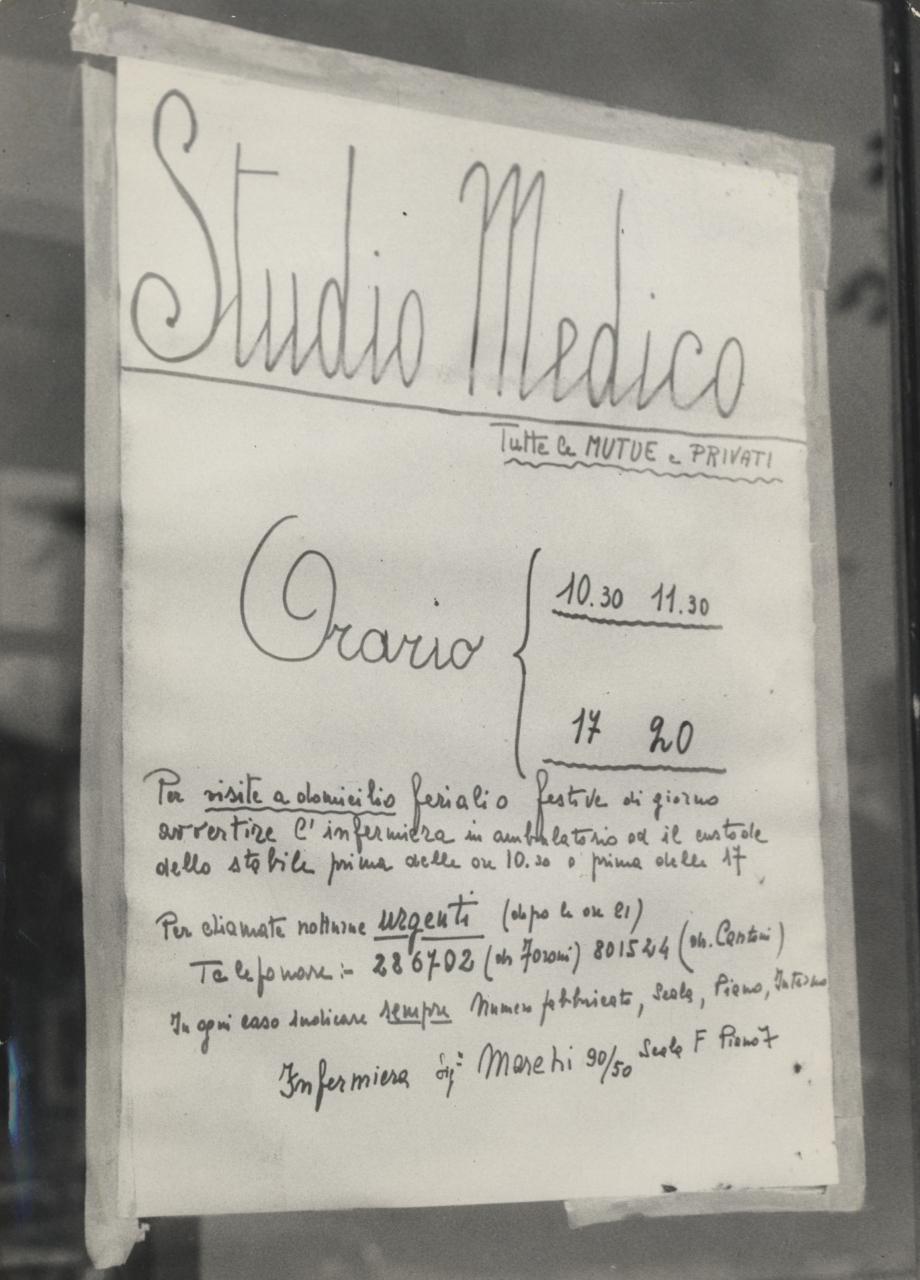 Studio Medico
Tutte le MUTUE e PRIVATI
Orario
10.30 11.30
17 20
Per visite a domicilio feriali o festive di giorno
avvertire l'infermiera in ambulatorio od il custode
dello stabile prima delle ore 10.30 o prima delle 17
Per chiamate notturne urgenti (dopo le ore 21)
Telefonare:- 286702 (dr Foroni) 801524 (dr. Cantoni)
In ogni caso indicare sempre Numero fabbricato, Scala, Piano, Interno
Infermiera Sig.ª 90/50 Scala F Piano 7